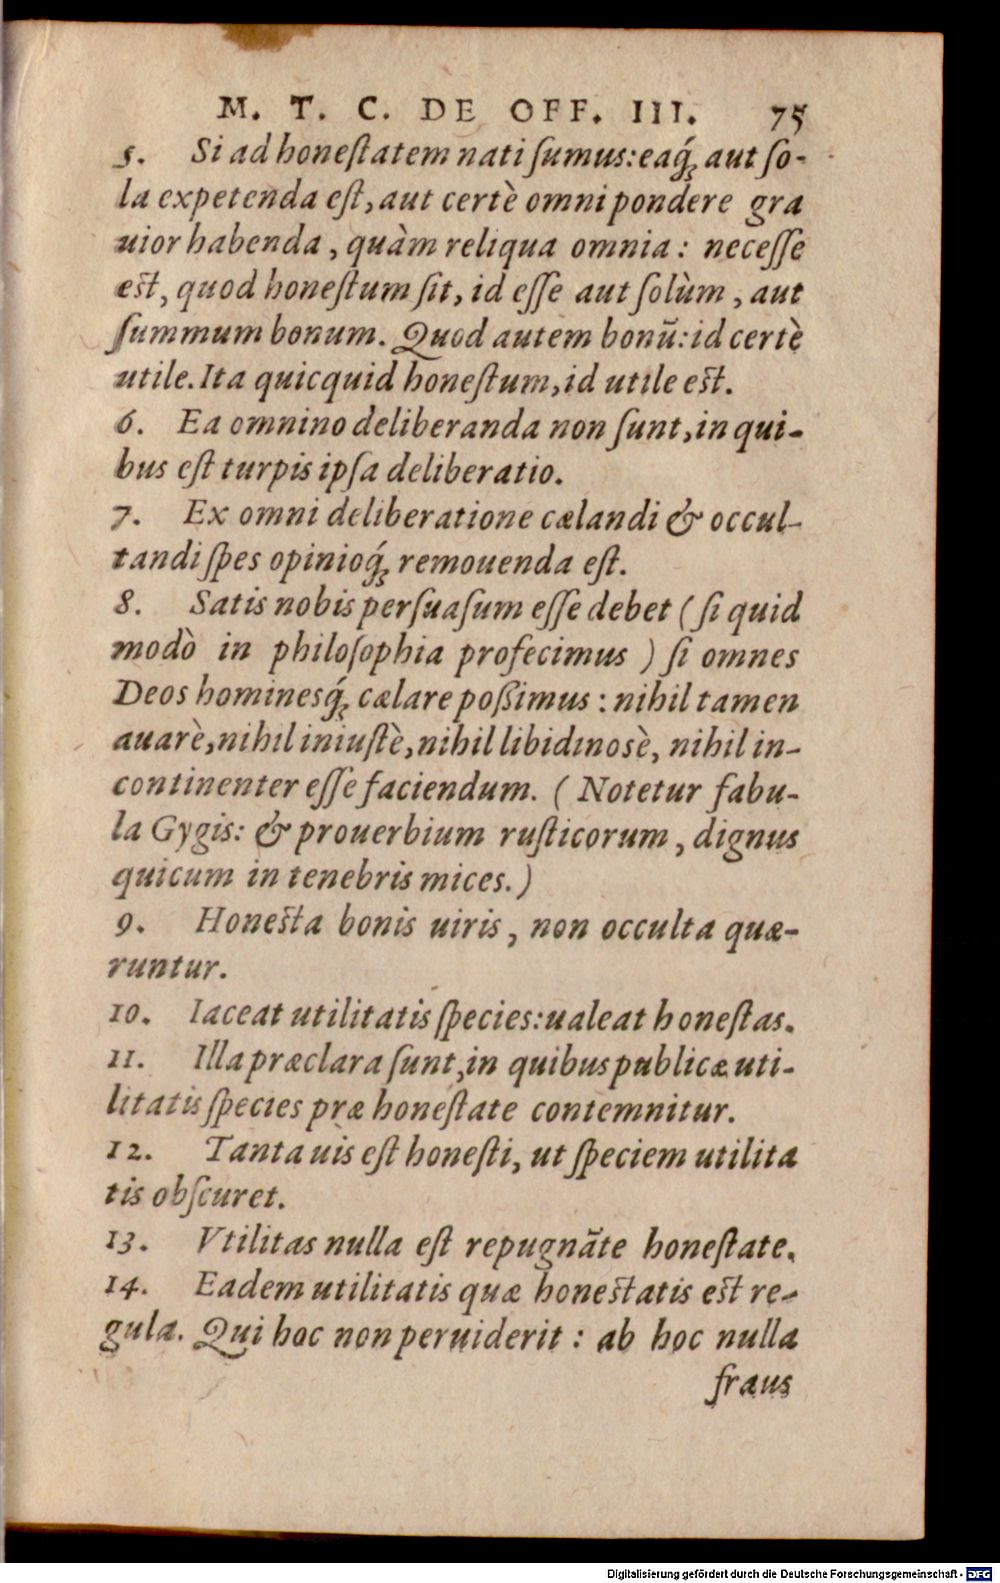 M. T. C. DE OFF. III. 75
5. Si ad honeſtatem nati ſumus: eaq́; aut ſo-
la expetenda eſt, aut certè omni pondere gra
uior habenda, quàm reliqua omnia: neceſſe
eſt, quod honeſtum ſit, id eſſe aut ſolùm, aut
ſummum bonum. Quod autem bonũ: id certè
utile. Ita quicquid honeſtum, id utile eſt.
6. Ea omnino deliberanda non ſunt, in qui-
bus eſt turpis ipſa deliberatio.
7. Ex omni deliberatione cælandi & occul-
tandi ſpes opinioq́; remouenda eſt.
8. Satis nobis perſuaſum eſſe debet (ſi quid
modò in philoſophia profecimus) ſi omnes
Deos hominesq́; cælare poßimus: nihil tamen
auarè, nihil iniuſtè, nihil libidinosè, nihil in-
continenter eſſe faciendum. (Notetur fabu-
la Gygis: & prouerbium ruſticorum, dignus
quicum in tenebris mices.)
9. Honeſta bonis uiris, non occulta quæ-
runtur.
10. Iaceat utilitatis ſpecies: ualeat honeſtas.
11. Illa præclara ſunt, in quibus publicæ uti-
litatis ſpecies præ honeſtate contemnitur.
12. Tanta uis eſt honeſti, ut ſpeciem utilita
tis obſcuret.
13. Vtilitas nulla eſt repugnãte honeſtate.
14. Eadem utilitatis quæ honeſtatis eſt re-
gula. Qui hoc non peruiderit: ab hoc nulla
fraus
Digitalisierung gefördert durch die Deutsche Forschungsgemeinschaft - DFG